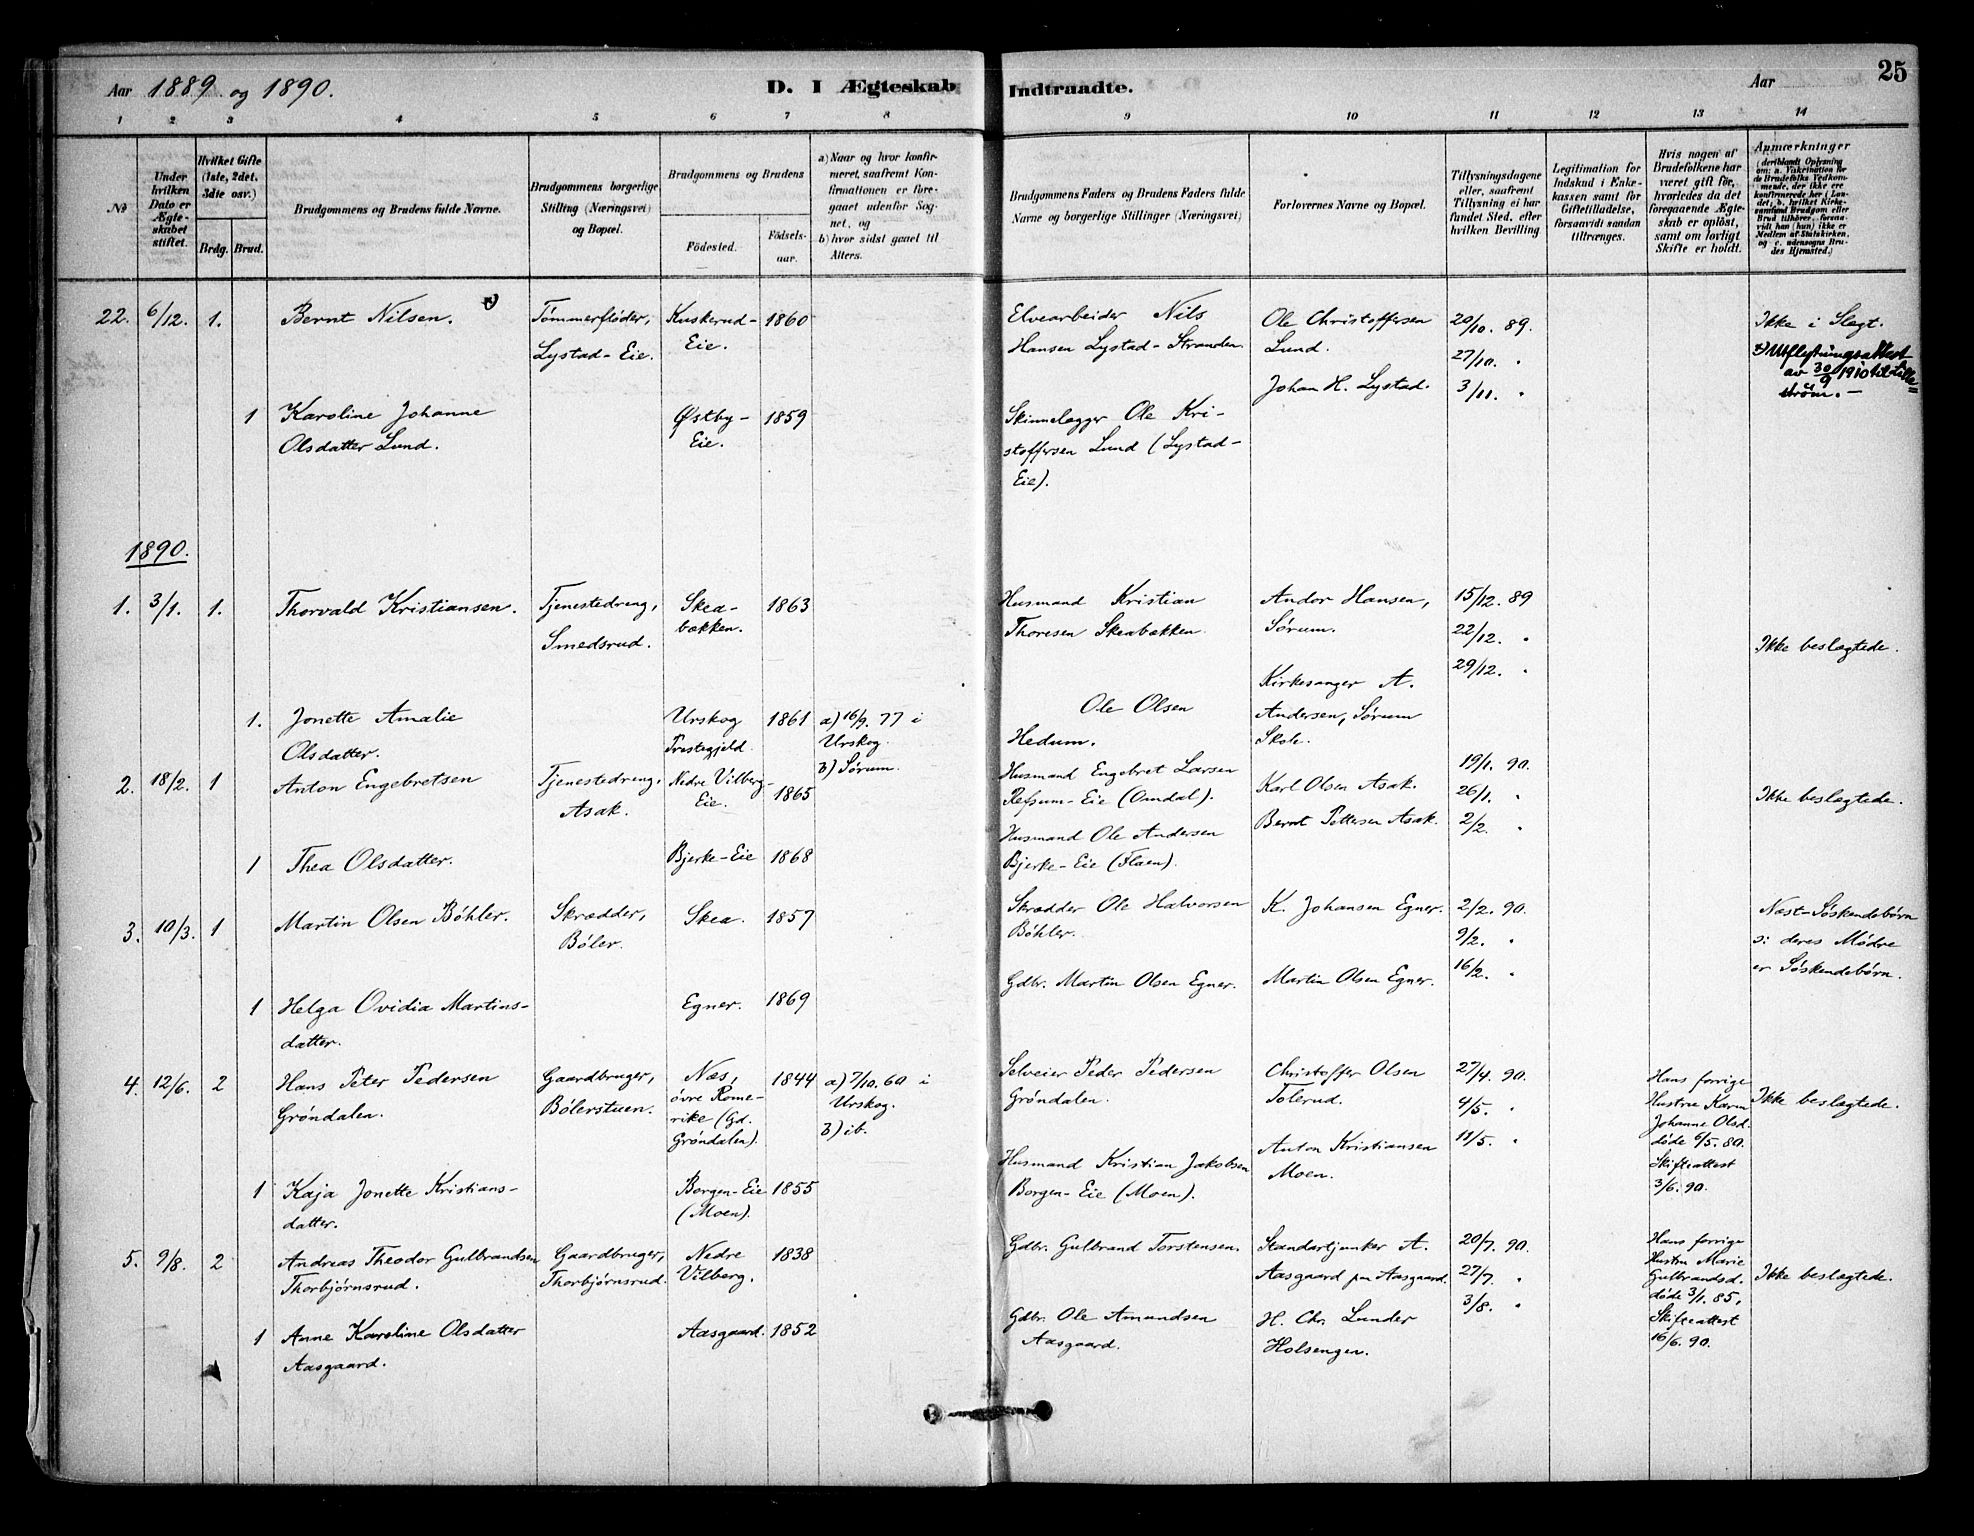 25
Aar 1889 og 1890.
D. I Ægteskab Indtraadte.
Aar
1 2 3 4 5 6 7 8 9 10 11 12 13 14
No
Under hvilken Dato er Ægteskabet stiftet.
Hvilket Gifte (1ste, 2det, 3die osv.)
Brdg. Brud.
Brudgommens og Brudens fulde Navne.
Brudgommens borgerlige Stilling (Næringsvei) og Bopæl.
Brudgommens og Brudens
Fødested.
Fødsels-aar.
a) Naar og hvor konfirmeret, saafremt Konfirmationen er foregaaet udenfor Sognet, og
b) hvor sidst gaaet til Alters.
Brudgommens Faders og Brudens Faders fulde Navne og borgerlige Stillinger (Næringsvei)
Forlovernes Navne og Bopæl.
Tillysningsdagene eller, saafremt Tillysning ei har fundet Sted, efter hvilken Bevilling
Legitimation for Indskud i Enkekassen samt for Giftetilladelse, forsaavidt saadan tiltrænges.
Hvis nogen af Brudefolkene har været gift før, hvorledes da det foregaaende Ægteskab er opløst, samt om lovligt Skifte er holdt.
Anmærkninger
(deriblandt Oplysning om: a. Vakcination for de Brudefolks Vedkommende, der ikke ere konfirmerede her i Landet, b. hvilket Kirkesamfund Brudgom eller Brud tilhører, forsaavidt han (hun) ikke er Medlem af Statskirken, og c. udensogns Brudes Hjemsted.)
22. 6/12. 1. Bernt Nilsen.
Tømmerfløder,
Lystad-Eie.
Kuskerud-
Eie.
1860
Elvearbeider Nils
Hansen Lystad-Stranden.
Ole Christoffersen
Lund.
Johan H. Lystad.
20/10. 89.
27/10. "
3/11. "
Ikke i Slægt.
Utflytningsattest
av 30/9 1910 til Lille-
strøm. —
1 Karoline Johanne
Olsdatter Lund.
Østby-
Eie.
1859
Skinnelægger Ole Kri-
stoffersen Lund (Lystad-
Eie).
1890.
1. 3/1. 1. Thorvald Kristiansen.
Tjenestedreng,
Smedsrud.
Skea-
bækken.
1863
Husmand Kristian
Thoresen Skeabækken.
Andor Hansen,
Sørum.
Kirkesanger A.
Andersen, Sørum
Skole.
15/12. 89
22/12. "
29/12. "
Ikke beslægtede.
1. Jonette Amalie
Olsdatter.
Urskog
Prestegjeld.
1861
a) 16/9. 77 i
Urskog.
b) Sørum.
Ole Olsen
Hedum.
2. 18/2. 1 Anton Engebretsen
Tjenestedreng,
Asak.
Nedre Vilberg-
Eie.
1865
Husmand Engebret Larsen
Refsum-Eie (Omdal).
Karl Olsen Asak.
Bernt Pettersen Asak.
19/1. 90.
26/1. "
2/2. "
Ikke beslægtede.
1 Thea Olsdatter.
Bjerke-Eie
1868
Husmand Ole Andersen
Bjerke-Eie (Flaen).
3. 10/3. 1 Martin Olsen Bøhler.
Skrædder,
Bøler.
Skea.
1857
Skrædder Ole Halvorsen
Bøhler.
K. Johansen Egner.
Martin Olsen Egner.
2/2. 90.
9/2. "
16/2. "
Næst-Søskendebørn
ɔ: deres Mødre
er Søskendebørn.
1 Helga Ovidia Martins-
datter.
Egner.
1869
Gdbr. Martin Olsen Egner.
4. 12/6. 2 Hans Peter Pedersen
Grøndalen.
Gaardbruger,
Bølerstuen.
Næs,
øvre Rome-
rike (Gd.
Grøndalen).
1844
a) 7/10. 60 i
Urskog.
b) ib.
Selveier Peder Pedersen
Grøndalen.
Christoffer Olsen
Tolerud.
Anton Kristiansen
Moen.
27/4. 90.
4/5. "
11/5. "
Hans forrige
Hustru Karen
Johanne Olsd.
døde 6/5. 80.
Skifteattest
3/6. 90.
Ikke beslægtede.
1 Kaja Jonette Kristians-
datter.
Borgen-Eie
(Moen).
1855
Husmand Kristian Jakobsen
Borgen-Eie (Moen).
5. 9/8. 2 Andreas Theodor Gulbrandsen
Thorbjørnsrud.
Gaardbruger,
Thorbjørnsrud.
Nedre
Vilberg.
1838
Gdbr. Gulbrand Torstensen.
Standartjunker A.
Aasgaard paa Aasgaard.
H. Chr. Lunder
Holsengen.
20/7. 90.
27/7. "
3/8. "
Hans forrige
Hustru Marie
Gulbrandsd.
døde 3/1. 85,
Skifteattest
16/6. 90.
Ikke beslægtede.
1 Anne Karoline Olsdatter
Aasgaard.
Aasgaard.
1852
Gdbr. Ole Amundsen
Aasgaard.